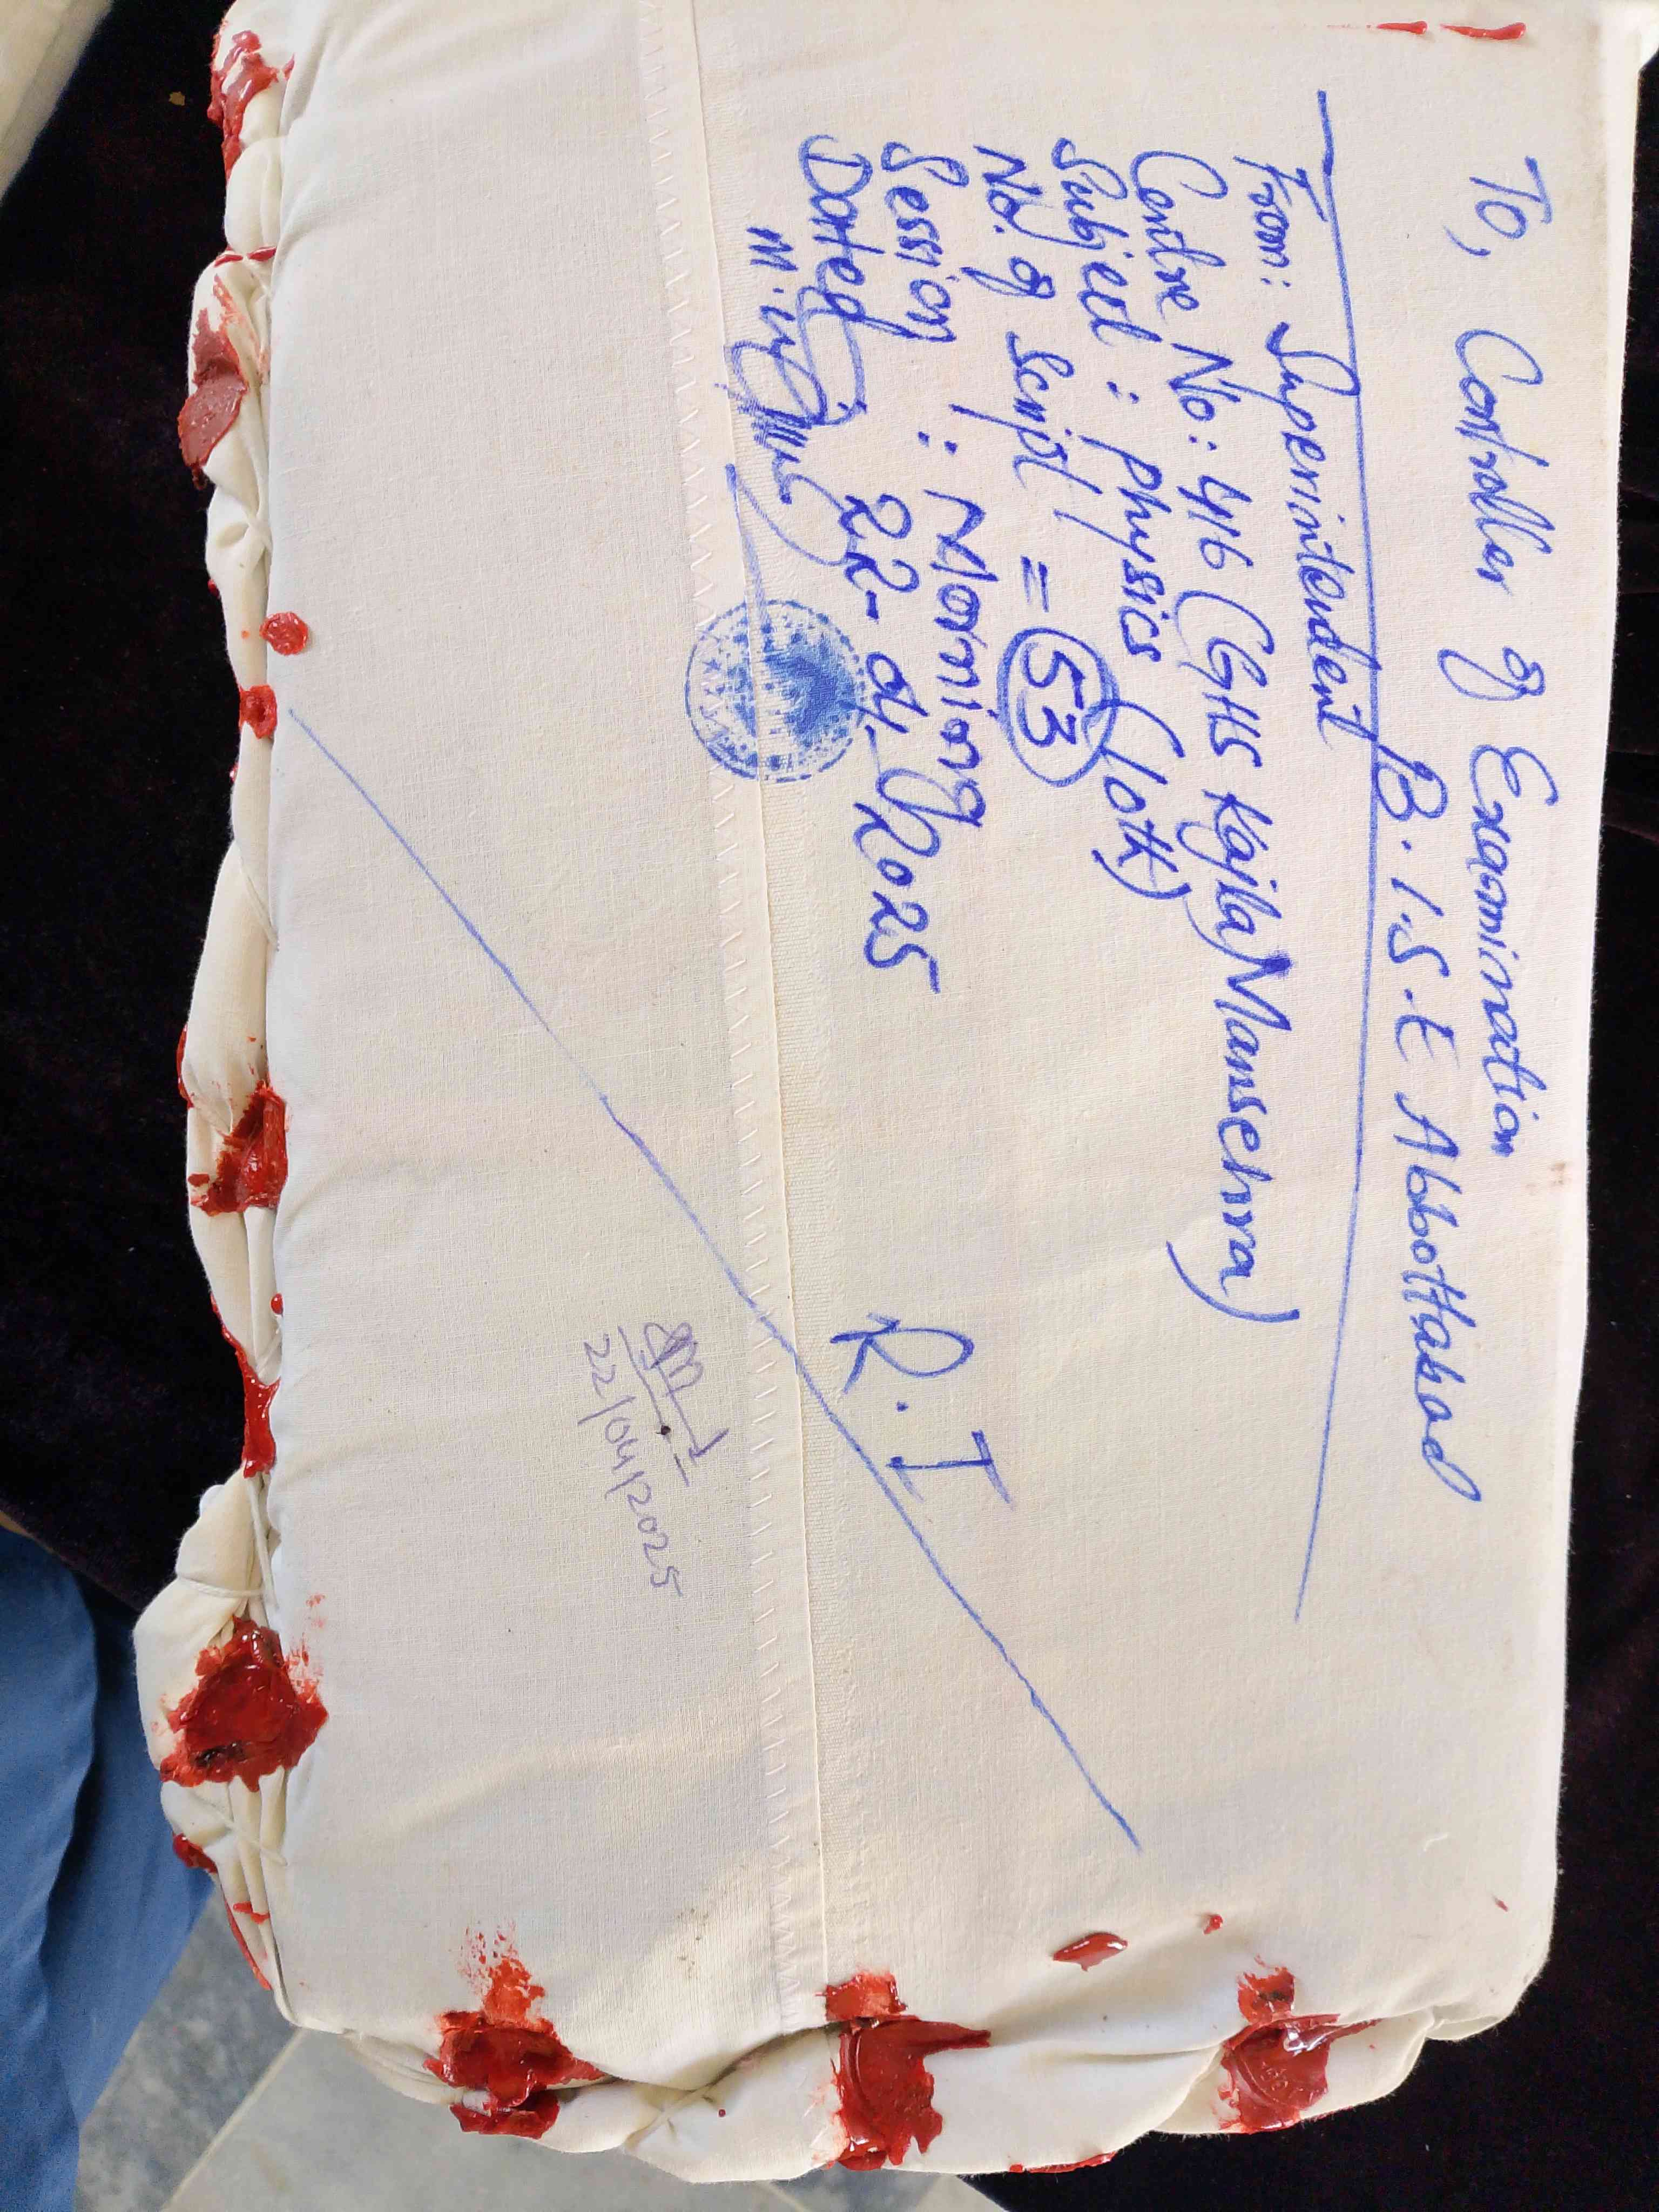 To, Controller of Examination
B.I.S.E Abbottabad
From: Superintendent
Centre No: 416 (GHS Kajla Mansehra)
Subject: Physics (10th)
No. of Script = 53
Session : Morning
Dated 22-04-2025
R.I
22/04/2025